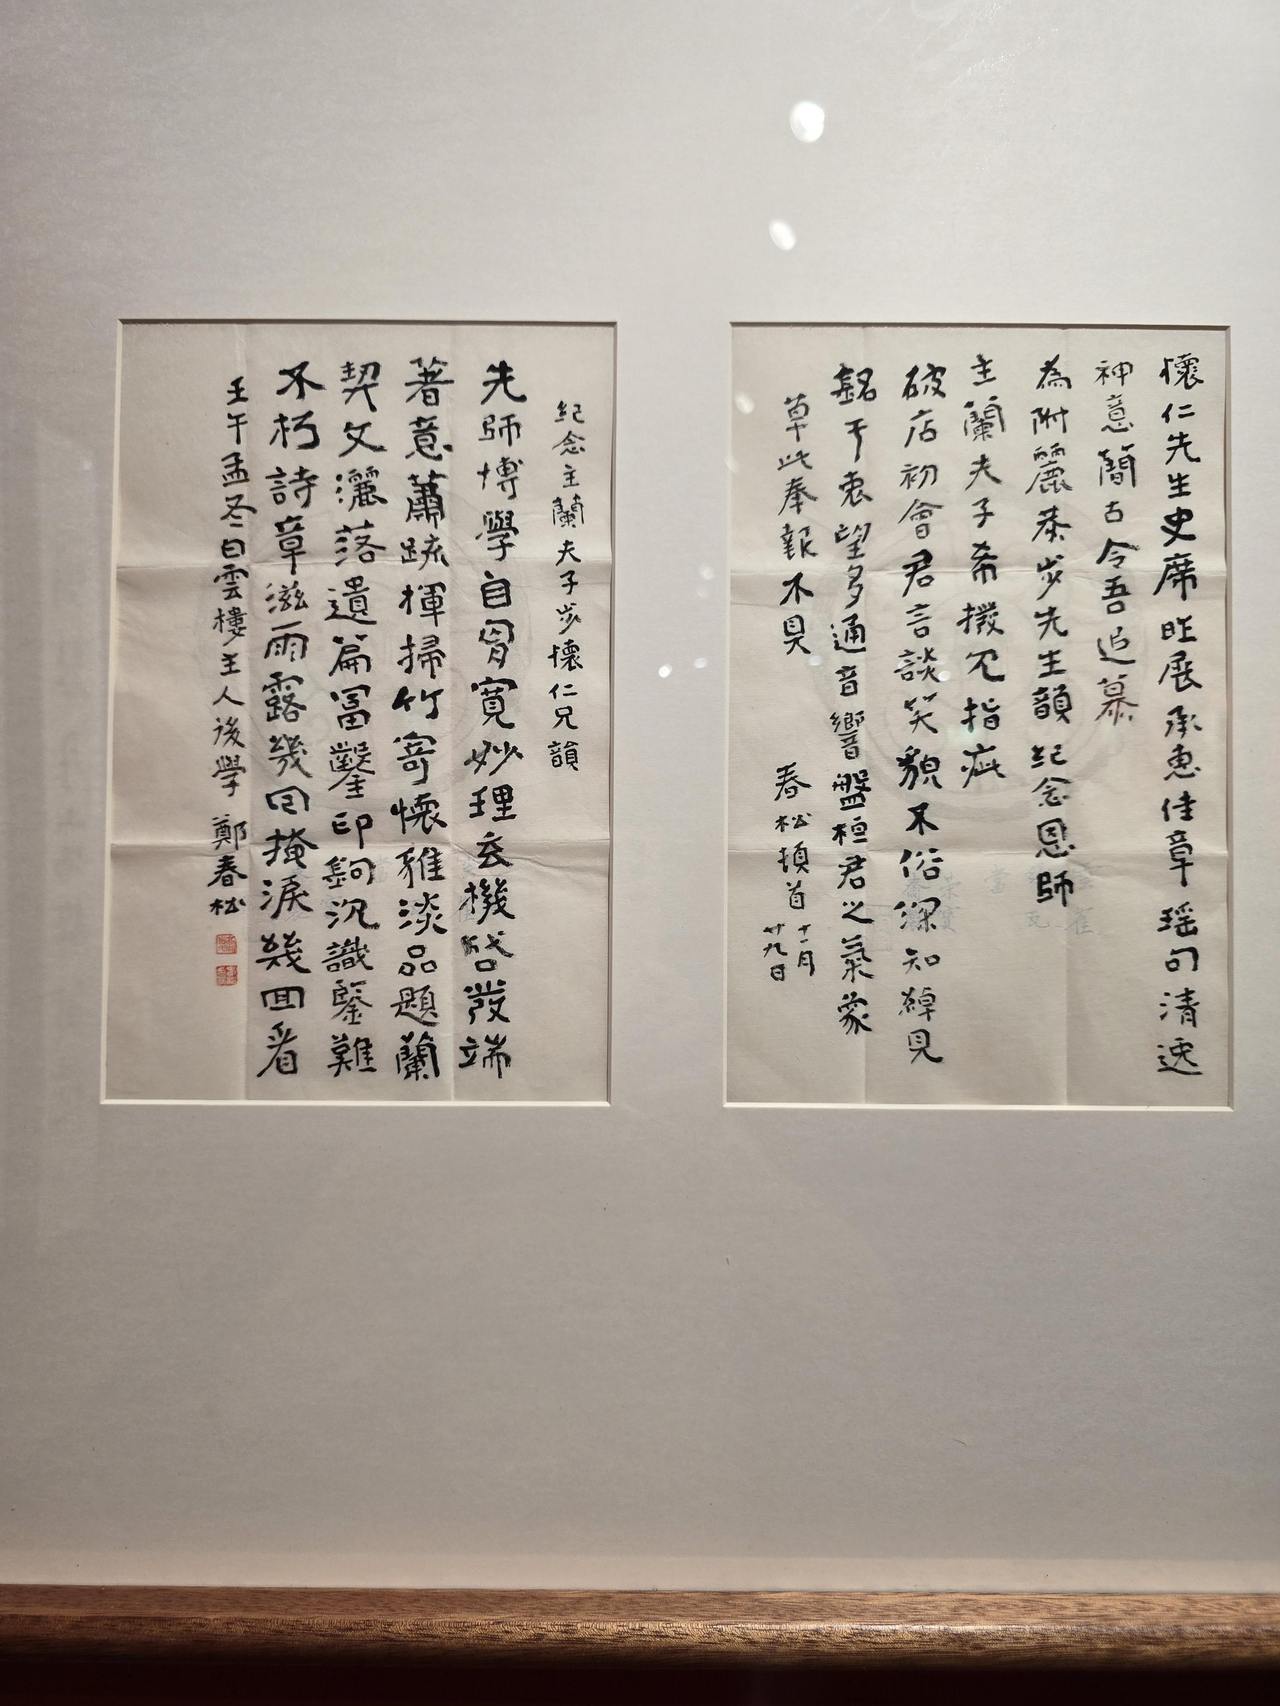 懷仁先生史席昨展承惠佳章瑶句清逸
神意簡古令吾追慕
為附麗恭步先生韻紀念恩師
主蘭夫子希撥冗指疵
破店初會君言談笑貌不俗深知綽見
銘于衷望多通音響盤桓君之氣象
草此奉報不具
春松頓首十一月
廿九日
紀念主蘭夫子步懷仁兄韻
先師博學自胷寬妙理玄機啓發端
著意蕭疏揮掃竹寄懷雅淡品題蘭
契文灑落遺篇富鑿印鉤沉識鑒難
不朽詩章滋雨露幾回掩淚幾回看
壬午孟冬白雲樓主人後學鄭春松